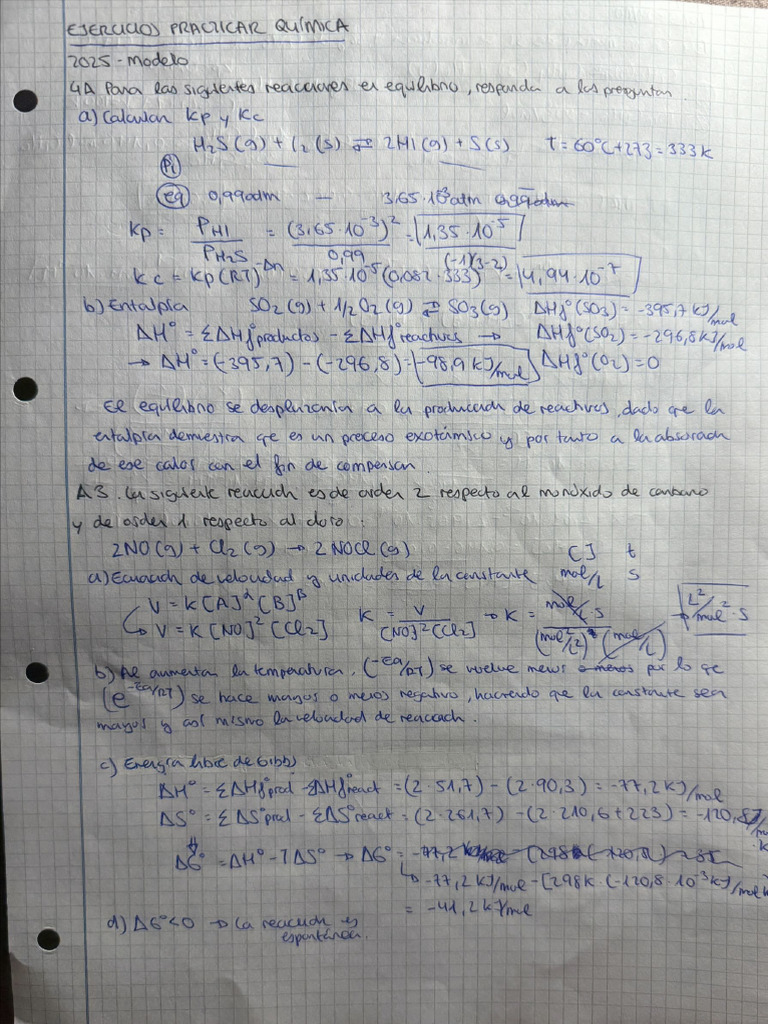 EJERCICIOS PRACTICAR QUÍMICA
2025 - Modelo
4A Para las siguientes reacciones en equilibrio, responda a las preguntas.
a) Calcular Kp y Kc
H₂S(g) + I₂(s) ⇌ 2HI(g) + S(s) t = 60°C + 273 = 333K
Pi
eq 0,99atm — 3,65·10⁻³atm
Kp = P_HI / P_H₂S = (3,65·10⁻³)² / 0,99 = 1,35·10⁻⁵
Kc = Kp(RT)^-Δn = 1,35·10⁻⁵(0,082·333)^(-1)(3-2) = 4,94·10⁻⁷
b) Entalpía SO₂(g) + 1/2O₂(g) ⇌ SO₃(g) ΔHf°(SO₃) = -395,7 kJ/mol
ΔH° = ΣΔHf°productos - ΣΔHf°reactivos → ΔHf°(SO₂) = -296,8 kJ/mol
→ ΔH° = (-395,7) - (-296,8) = -98,9 kJ/mol ΔHf°(O₂) = 0
El equilibrio se desplazaría a la producción de reactivos, dado que la
entalpía demuestra que es un proceso exotérmico y por tanto a la absorción
de ese calor con el fin de compensar.
A3. La siguiente reacción es de orden 2 respecto al monóxido de carbono
y de orden 1 respecto al cloro:
2NO(g) + Cl₂(g) → 2NOCl(g) [ ] t
a) Ecuación de velocidad y unidades de la constante mol/L s
V = K[A]^α[B]^β
↳ V = K[NO]²[Cl₂] K = V / [NO]²[Cl₂] → K = mol/L·s / (mol²/L²)(mol/L) → L²/mol²·s
b) Al aumentar la temperatura, (-Ea/RT) se vuelve menos por lo que
(e^-Ea/RT) se hace mayor o menos negativo, haciendo que la constante sea
mayor y así mismo la velocidad de reacción.
c) Energía libre de Gibbs
ΔH° = ΣΔHf°prod - ΣΔHf°react = (2·51,7) - (2·90,3) = -77,2 kJ/mol
ΔS° = ΣΔS°prod - ΣΔS°react = (2·261,7) - (2·210,6 + 223) = -120,8 J/mol·K
ΔG° = ΔH° - TΔS° → ΔG° =
↳ -77,2 kJ/mol - [298K·(-120,8·10⁻³kJ/mol·K
= -41,2 kJ/mol
d) ΔG°<0 → La reacción es
espontánea.